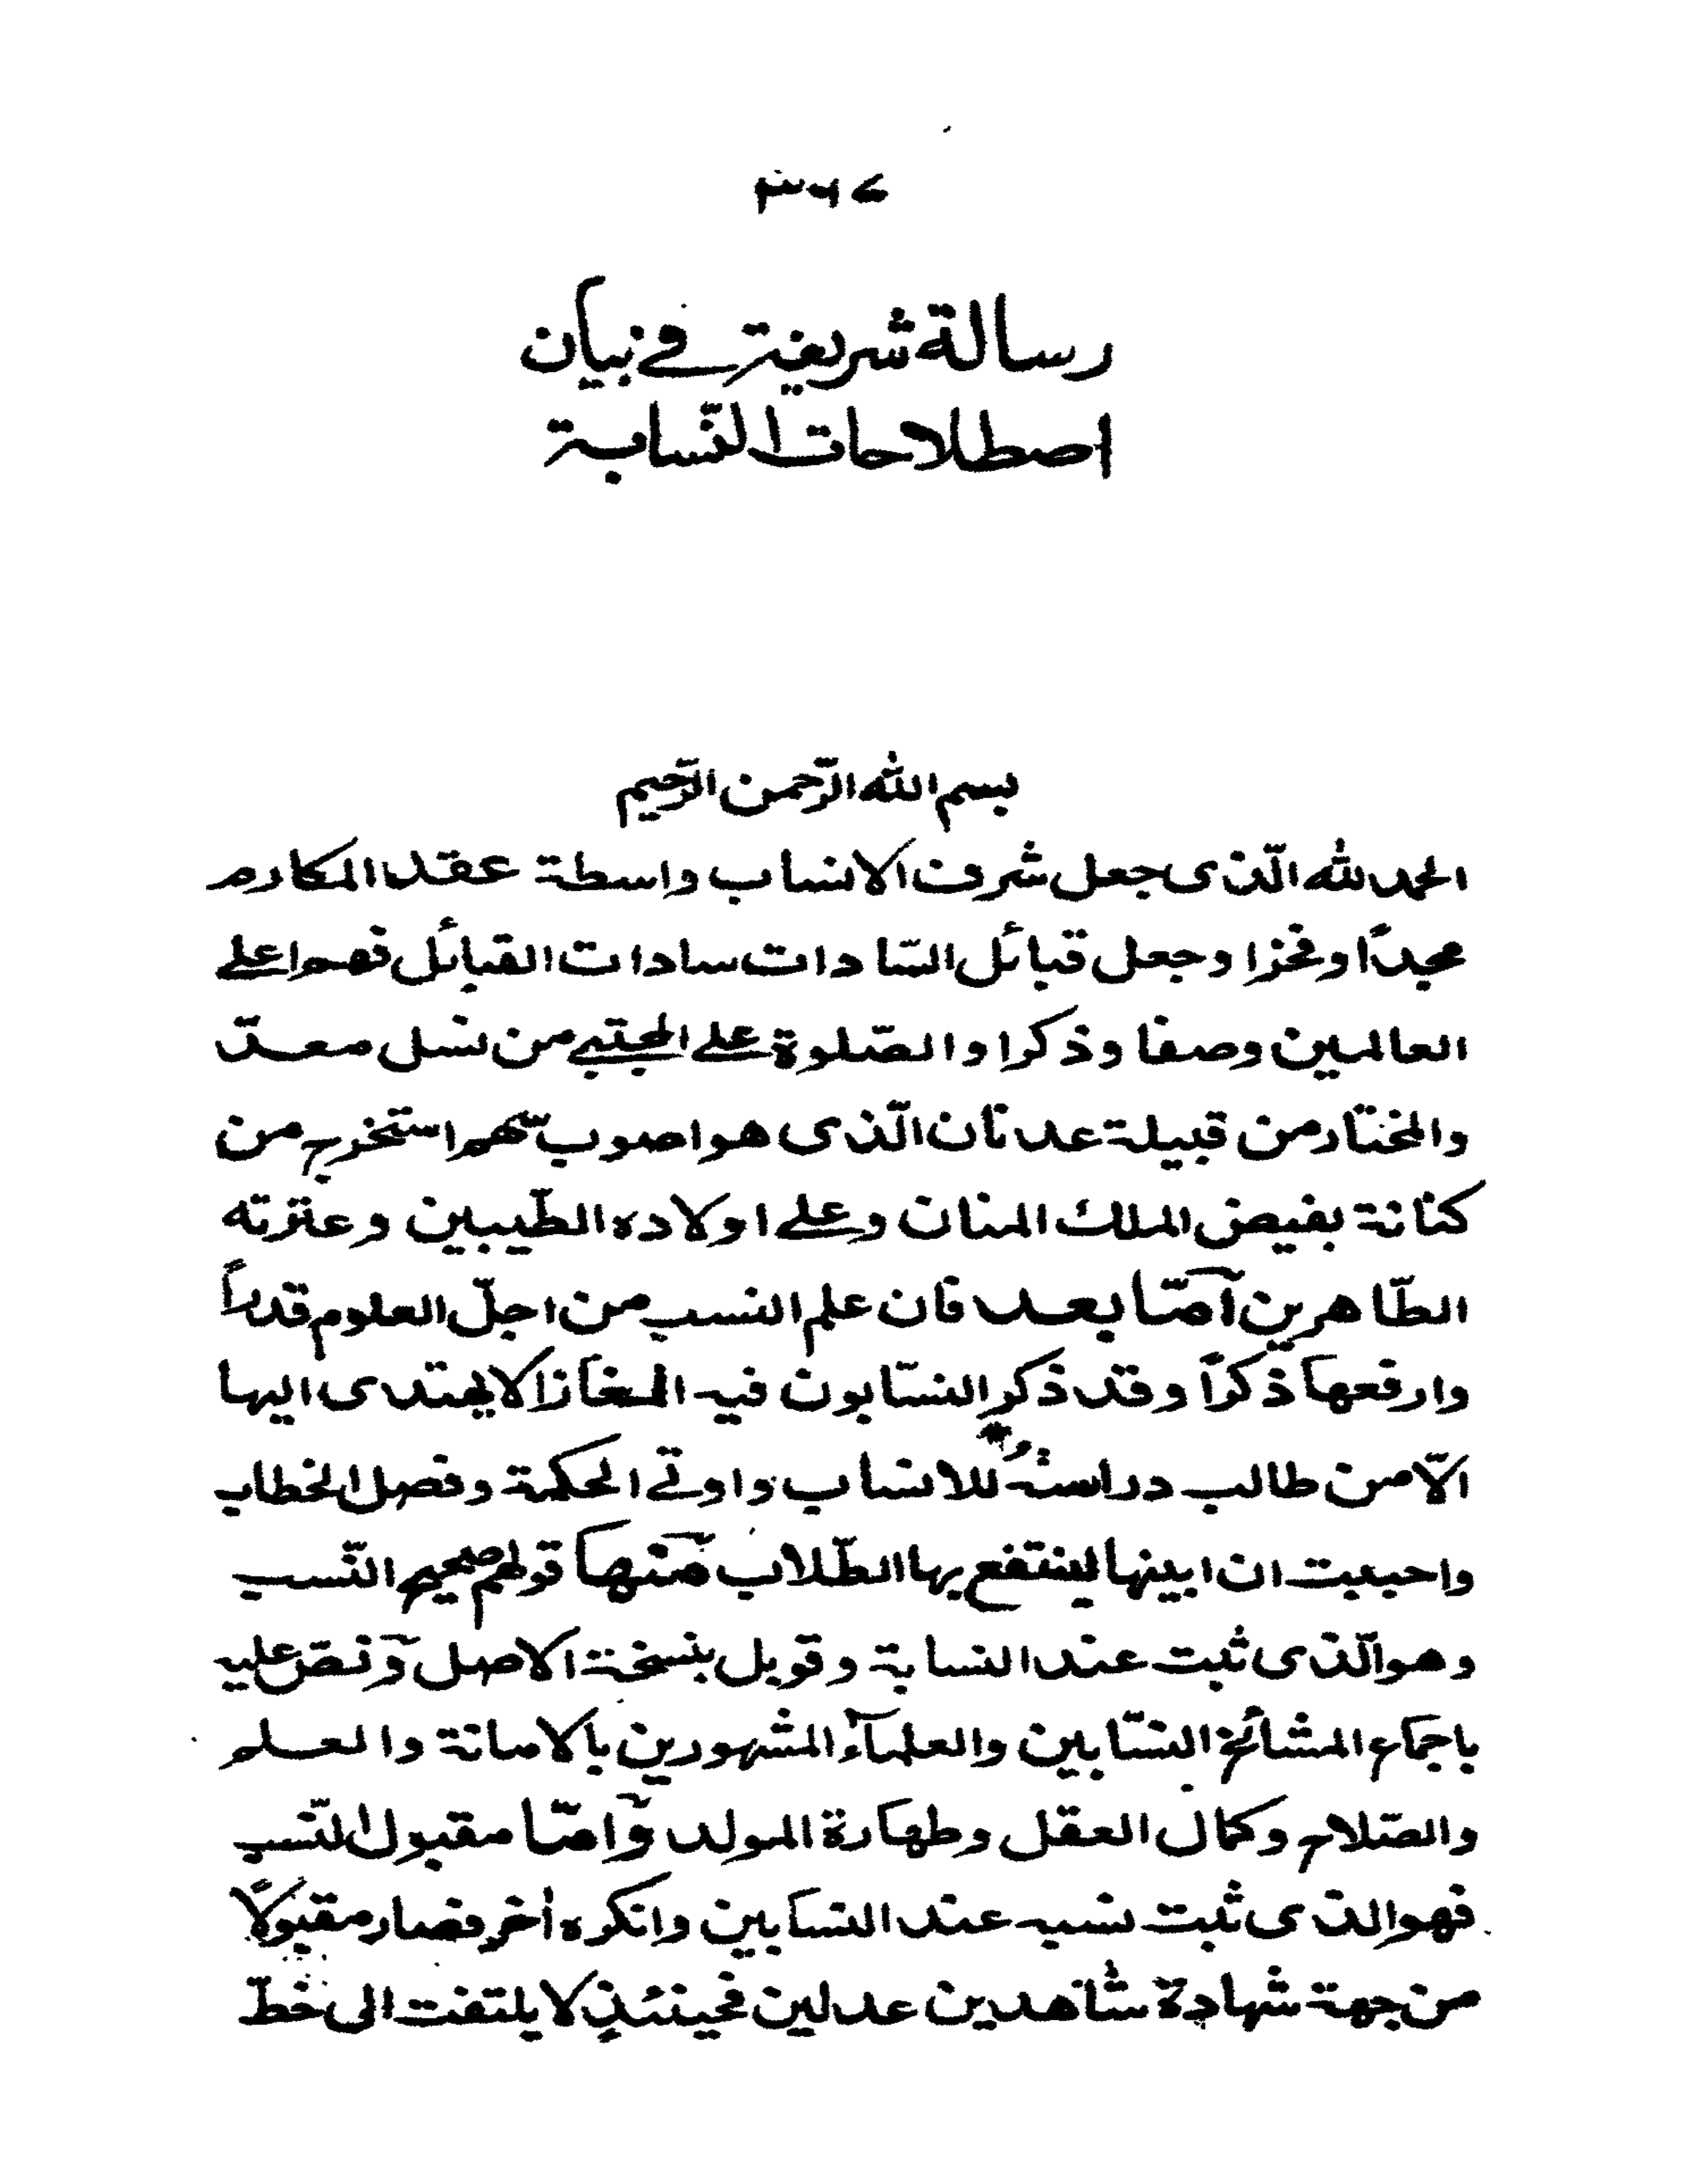 رسالة شريفة في بيان
اصطلاحات النّسابة
بسم الله الرّحمن الرّحيم
الحمد لله الّذى جعل شرف الانساب واسطة عقد المكارم
مجداً وفخرا وجعل قبائل السّادات سادات القبائل فهم اعلى
العالمين وصفا وذكرا والصّلوة على المجتبى من نسل معدّ
والمختار من قبيلة عدنان الّذى هو اصوب سهم استخرج من
كنانة بفيض الملك المنان وعلى اولاده الطّيبين وعترته
الطّاهرين امّا بعد فان علم النسب من اجلّ العلوم قدراً
وارفعها ذكراً وقد ذكر النسّابون فيه الغازا لا يهتدى اليها
الاّ من طالب دراسته للانساب واوتى الحكمة وفصل الخطاب
واحببت ان ابينها لينتفع بها الطّلاب منها قولهم صحيح النّسب
وهو الّذى ثبت عند النسابة وقوبل بنسخة الاصل ونصّ عليه
باجماع المشائخ النسّابين والعلمآء المشهورين بالامانة والعلم
والصّلاح وكمال العقل وطهارة المولد وامّا مقبول النّسب
فهو الذى ثبت نسبه عند النسابين وانكره اخر فصار مقبولاً
من جهة شهادة شاهدين عدلين فحينئذٍ لا يلتفت الى خطّ